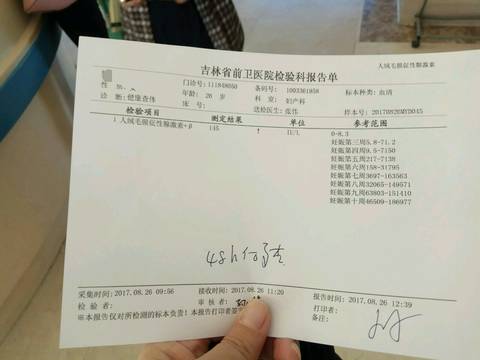 人绒毛膜促性腺激素
吉林省前卫医院检验科报告单
门诊号: 111848050 条码号: 1003361958 标本种类: 血清
性 别: 年龄: 26 岁 科 室: 妇产科
诊 断: 健康查体 床 号: 送检医生: 张伟 样本号: 20170826MYD045
检验项目 测定结果 单位 参考范围
1 人绒毛膜促性腺激素+β 145 ↑ IU/L 0-8.3
妊娠第三周5.8-71.2
妊娠第四周9.5-7150
妊娠第五周217-7138
妊娠第六周158-31795
妊娠第七周3697-163563
妊娠第八周32065-149571
妊娠第九周63803-151410
妊娠第十周46509-186977
48h后复查
采集时间: 2017.08.26 09:56 接收时间: 2017.08.26 11:20 报告时间: 2017.08.26 12:39
检 验 者: 审 核 者: 打印者:
※本报告仅对所检测的标本负责!本报告打印者签 备注: